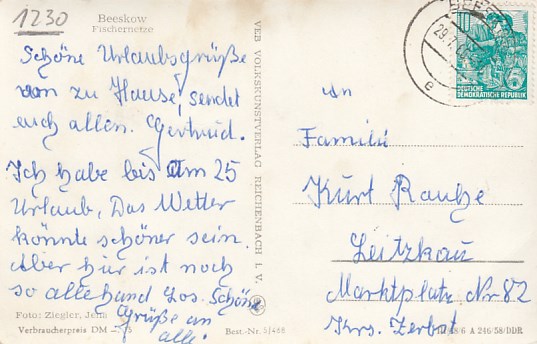 1230
Beeskow
Fischernetze
Schöne Urlaubsgrüße
von zu Hause, sendet
euch allen. Gertrud.
Ich habe bis Am 25
Urlaub, Das Wetter
könnte schöner sein.
Aber hier ist noch
so allehand los. Schöne
Grüße an
alle
Foto: Ziegler, Jena
Verbraucherpreis DM
Best.-Nr. 5/468
VEB VOLKSKUNSTVERLAG REICHENBACH I. V.
BEESKOW
29.7.
e
10
5
DEUTSCHE
DEMOKRATISCHE REPUBLIK
an
Familie
Kurt
Leitzkau
Marktplatz Nr 82
Krs. Zerbst
A 246/58/DDR